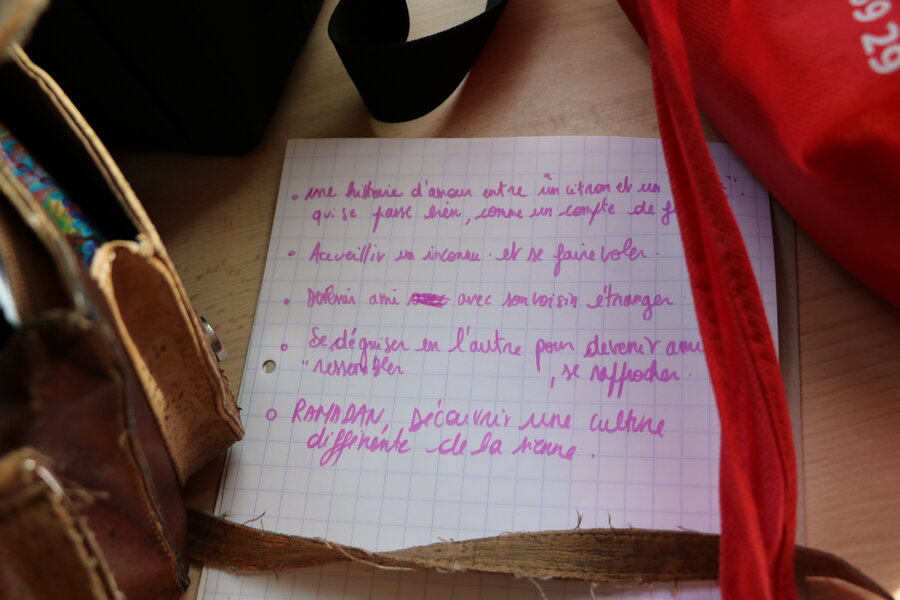 59 29
une histoire d'amour entre un citron et un
qui se passe bien, comme un compte de f
Accueillir un inconnu et se faire voler.
Devenir ami avec son voisin étranger
Se déguiser en l'autre pour devenir ami
"ressembler , se rapprocher.
RAMADAN, Découvrir une culture
différente de la sienne.